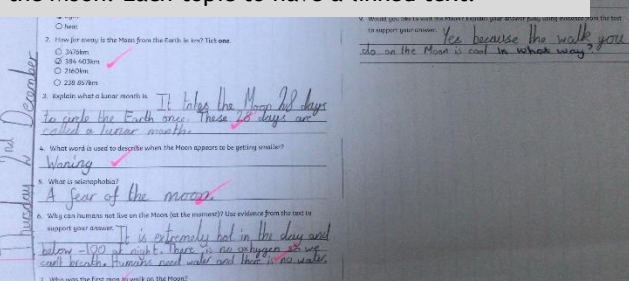 the moon. Each topic to have a linked text.
heat
2. How far away is the Moon from the Earth in km? Tick one.
3475km
384 403km
2160km
238 857km
3. Explain what a lunar month is. It takes the Moon 28 days
to circle the Earth once. These 28 days are
called a lunar month.
4. What word is used to describe when the Moon appears to be getting smaller?
Waning
5. What is selenophobia?
A fear of the moon.
6. Why can humans not live on the Moon (at the moment)? Use evidence from the text to
support your answer. It is extremely hot in the day and
below -100 at night. There is no oxhygen so we
can't breath. Humans need water and there is no water.
7. Who was the first man to walk on the Moon?
Thursday 2nd December
9. Would you like to visit the Moon? Explain your answer fully using evidence from the text
to support your answer. Yes because the walk you
do on the Moon is cool In what way?